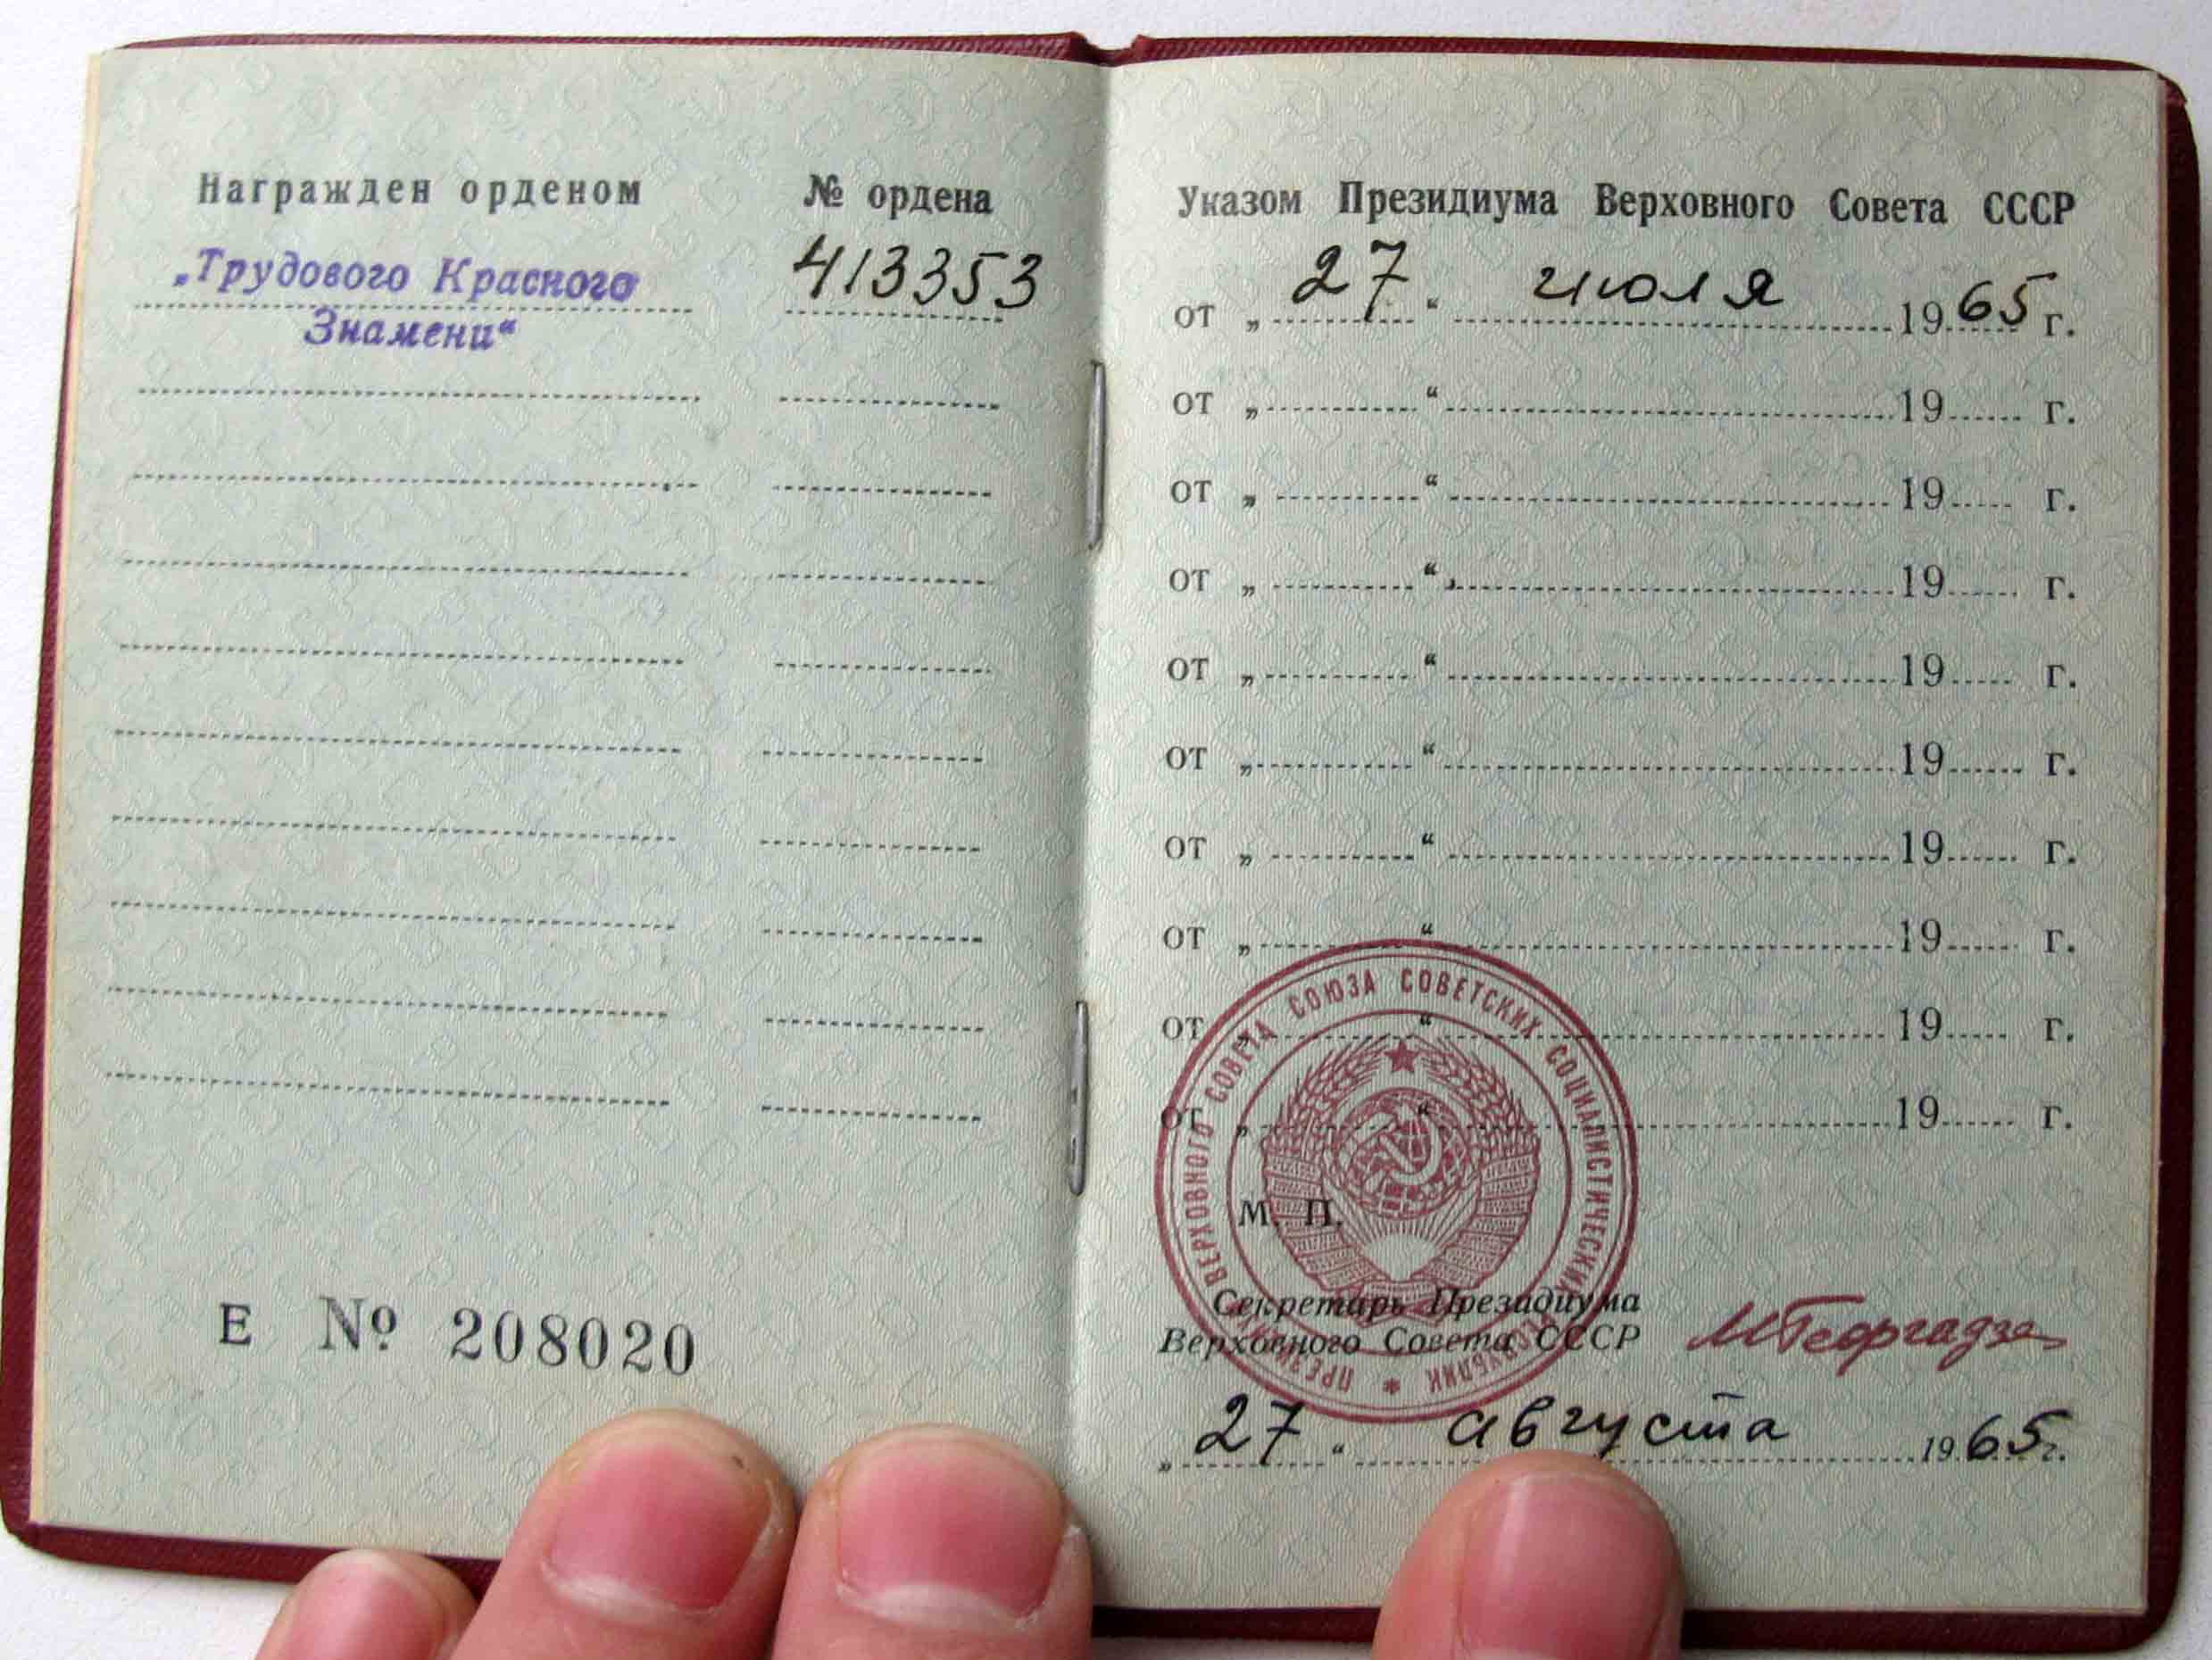 Награжден орденом № ордена
„Трудового Красного 413353
Знамени“
Е № 208020
Указом Президиума Верховного Совета СССР
от „27“ июля 1965 г.
от „ “ 19 г.
от „ “ 19 г.
от „ “ 19 г.
от „ “ 19 г.
от „ “ 19 г.
от „ “ 19 г.
от „ “ 19 г.
от „ “ 19 г.
от „ “ 19 г.
ПРЕЗИДИУМ ВЕРХОВНОГО СОВЕТА СОЮЗА СОВЕТСКИХ СОЦИАЛИСТИЧЕСКИХ РЕСПУБЛИК *
М. П.
Секретарь Президиума
Верховного Совета СССР МГеоргадзе
„27“ августа 1965 г.